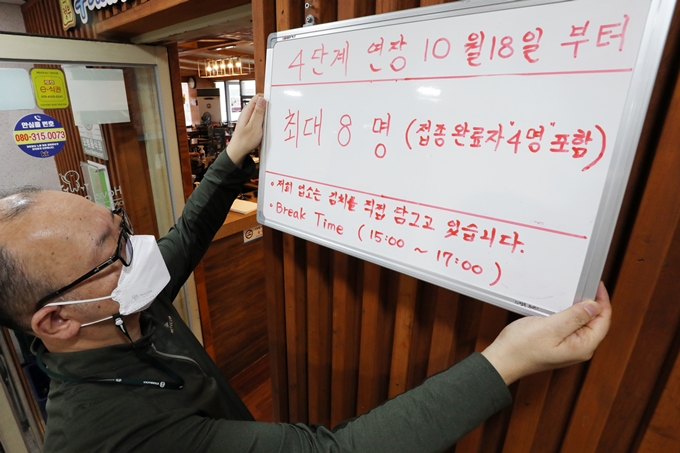 안심콜 번호
080-315 0073
4단계 연장 10월18일 부터
최대 8 명 (접종완료자"4명"포함)
• 저희 업소는 김치를 직접 담그고 있습니다.
• Break Time ( 15:00 ~ 17:00 )